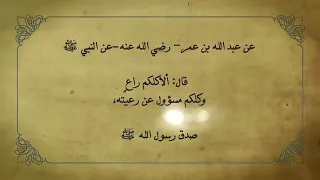 عن عبد الله بن عمر- رضي الله عنه -عن النبي ﷺ
قال: ألاكلكم راعٍ
وكلكم مسؤول عن رعيته،
صدق رسول الله ﷺ